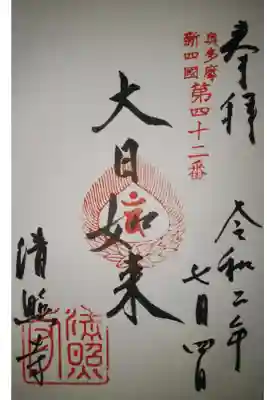 奉拝
奥多摩
新四國
第四十二番
令和二年
七月四日
大日如来
清照寺